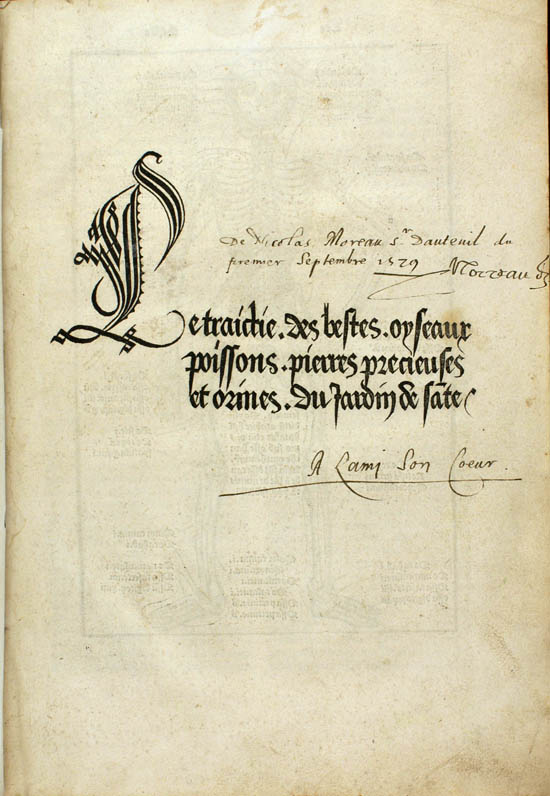 De Nicolas Moreau sr Dauteuil du
premier Septembre 1529 Moreau
Le traictie . des bestes . oyseaux
poissons . pierres precieuses
et orines . du Jardin de sãte
A Lami Son Coeur .